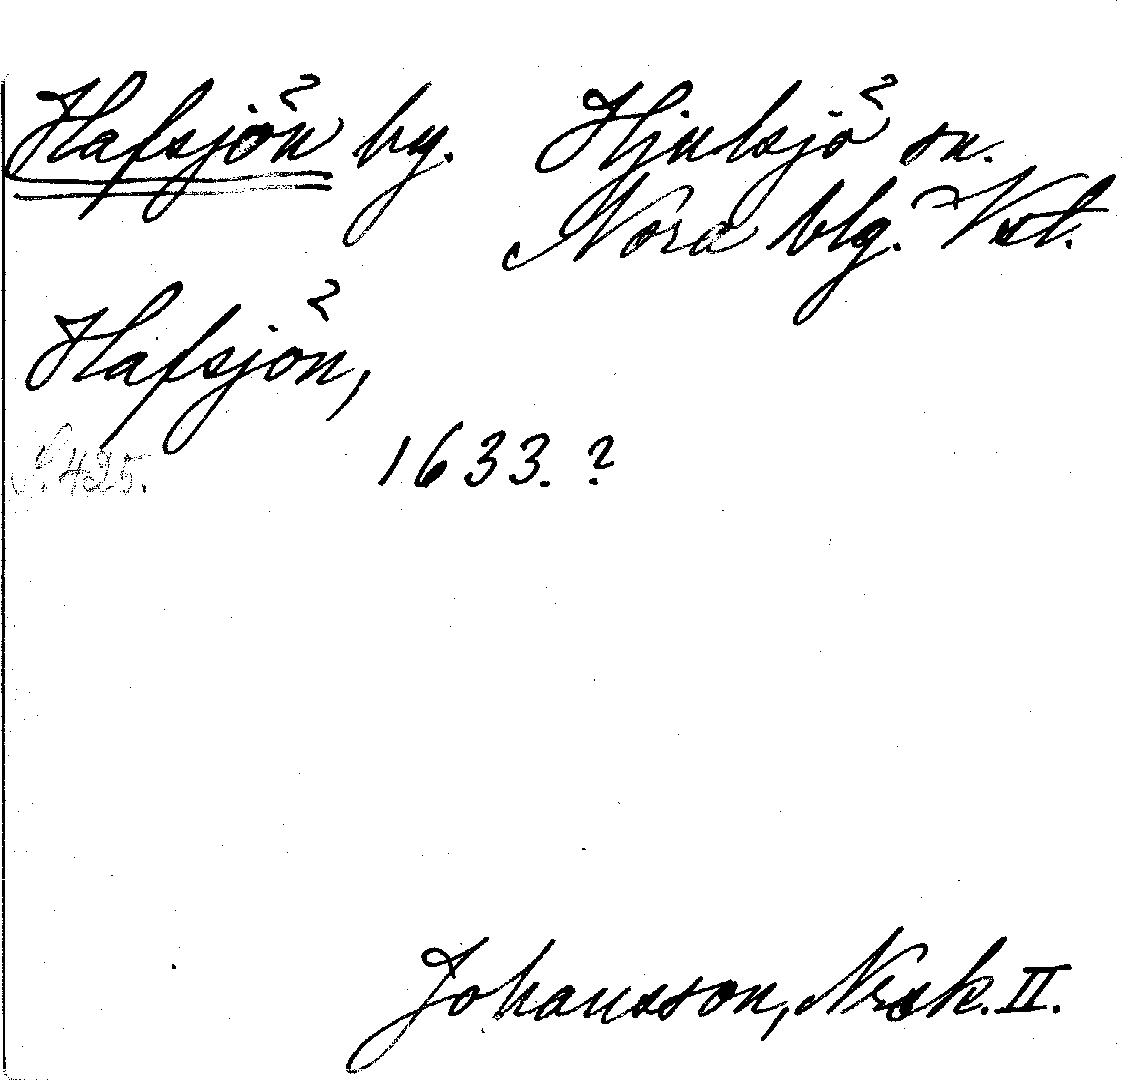 Hafsjön by. Hjulsjö sn.
Nora blg. Vstl.
Hafsjön,
S. 425. 1633. ?
Johansson, Nrsk. II.